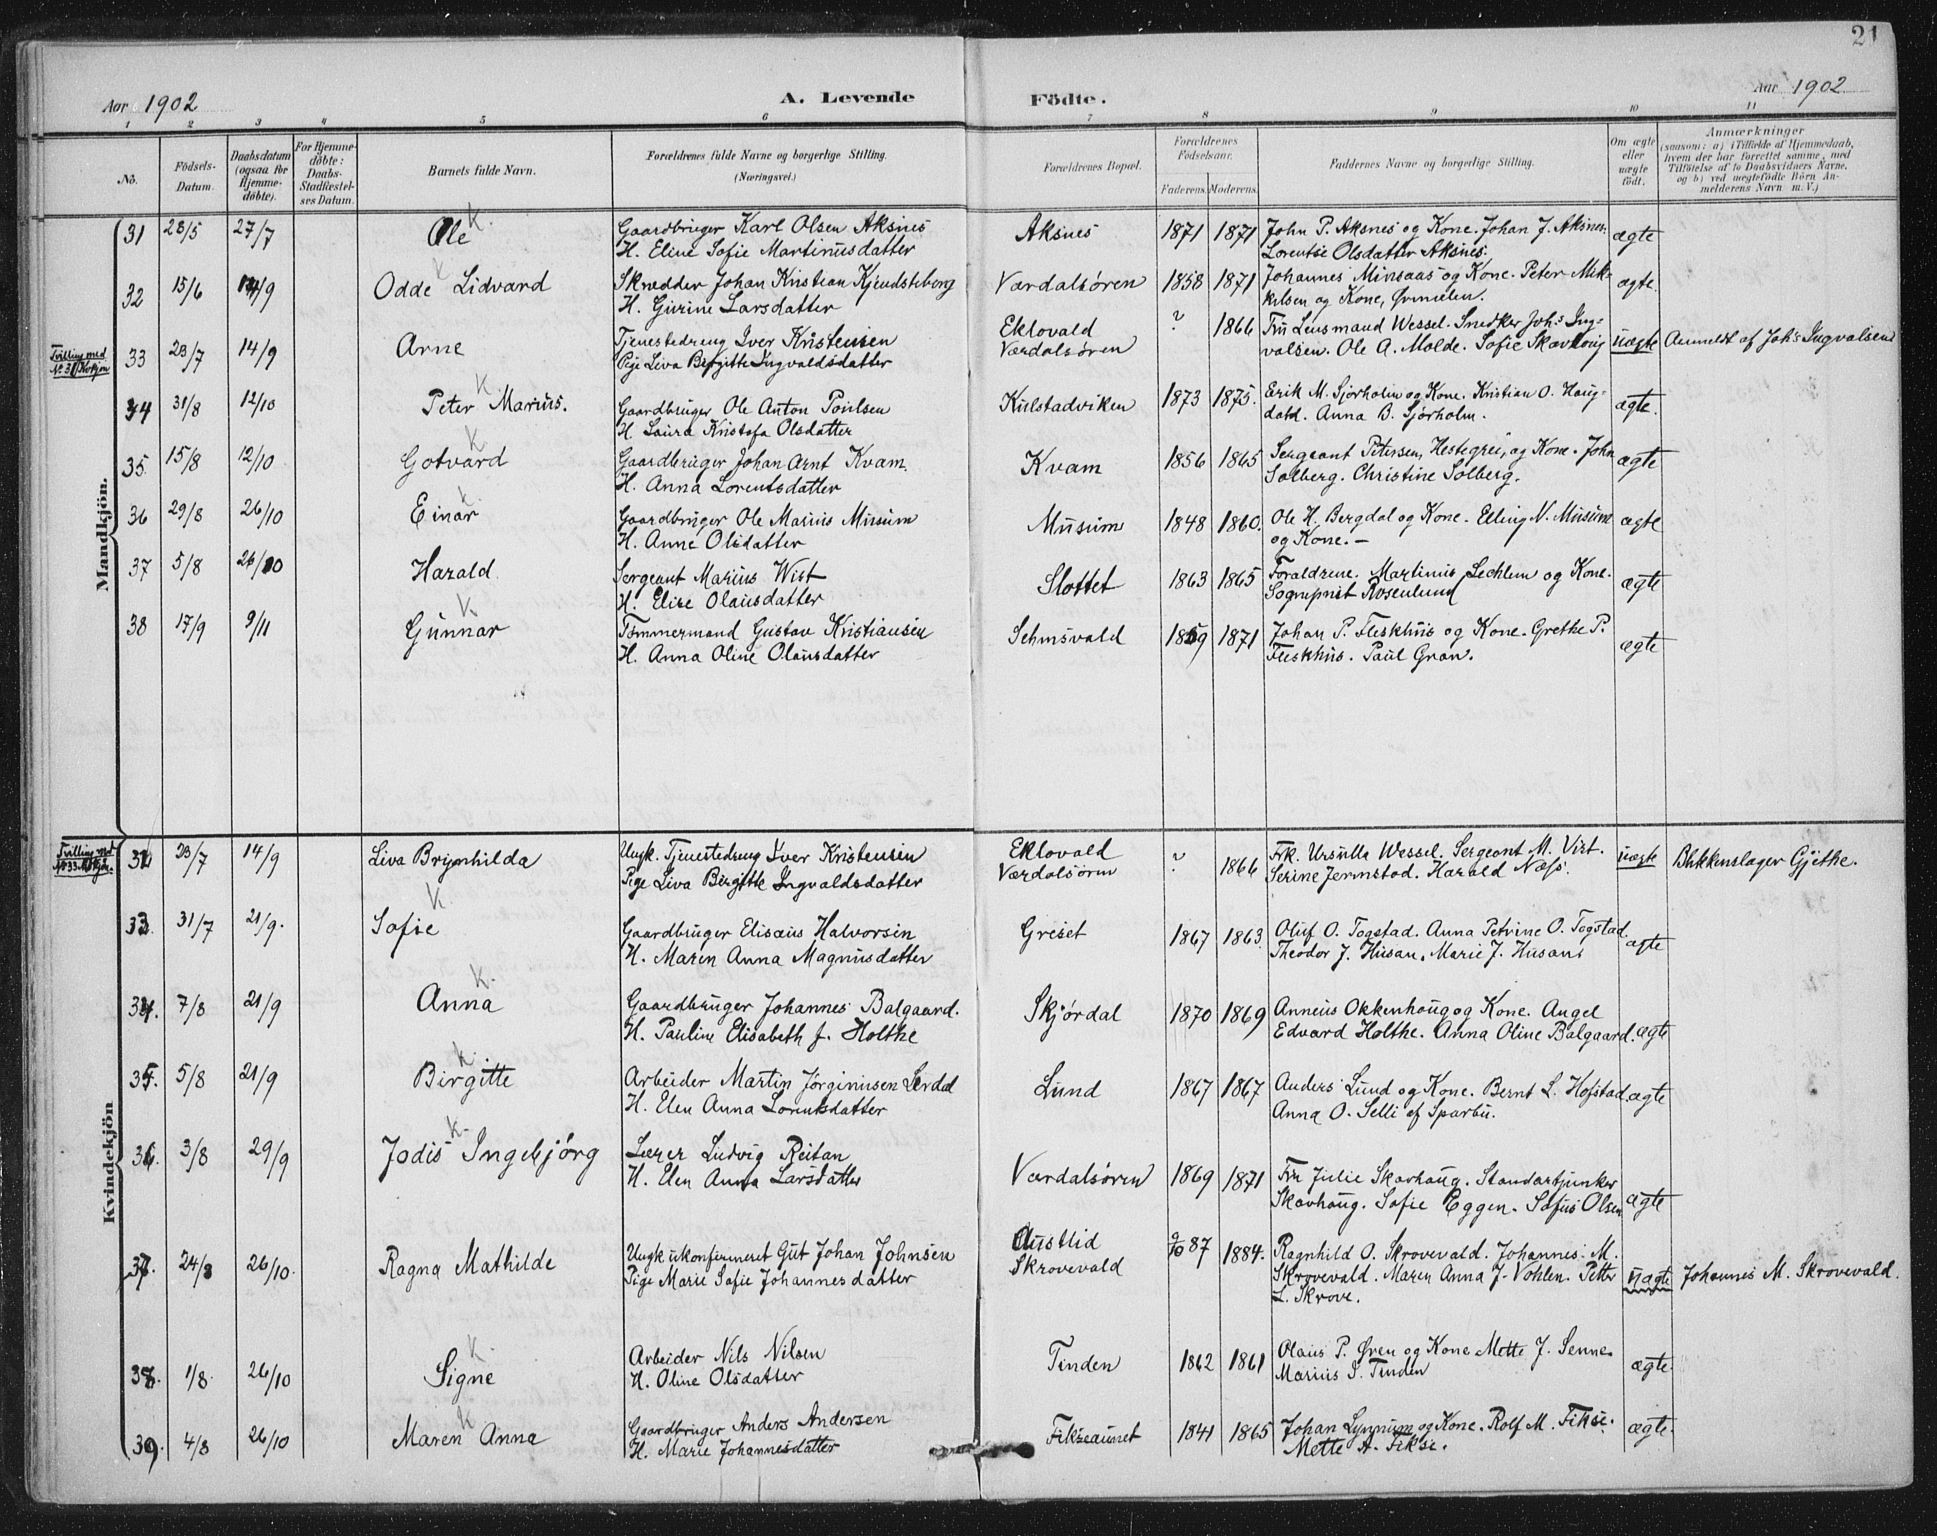 21
Aar 1902
A. Levende Födte.
Aar 1902
1 2 3 4 5 6 7 8 9 10 11
No.
Födsels-Datum.
Daabsdatum (ogsaa for Hjemme-döbte).
For Hjemme-döbte: Daabs-Stadfæstel-ses Datum.
Barnets fulde Navn.
Forældrenes fulde Navne og borgerlige Stilling.
(Næringsvei.)
Forældrenes Bopæl.
Forældrenes Födselsaar.
Faderens. Moderens.
Faddernes Navne og borgerlige Stilling.
Om ægte eller uægte födt.
Anmærkninger
(saasom: a) i Tilfælde af Hjemmedaab, hvem der har forrettet samme, med Tilföielse af to Daabsvidners Navne. og b) ved uægtefödte Börn An-melderens Navn m. V.)
Mandkjön.
31 23/5 27/7 Ole K. Gaardbruger Karl Olsen Aksnes Aksnes 1871 1871 John P. Aksnes og Kone. Johan J. Aksnes. ægte
H. Eline Sofie Martinusdatter Lorentse Olsdatter Aksnes.
32 15/6 14/9 Odde Lidvard K Skrædder Johan Kristian Kjendsteberg Værdalsören 1858 1871 Johannes Minsaas og Kone. Peter Mik- ægte.
H. Gurine Larsdatter kelsen og Kone,
Tvilling med No 31 Kvkjön
33 23/7 14/9 Arne Tjenestedreng Iver Kristensen Eklovald ? 1866 Fru Lensmand Wessel. Snedker Johs Ing- uægte Anmeldt af Johs Ingvalsen
Pige Liva Birgitte Ingvaldsdatter Værdalsören valsen. Ole A. Molde. Sofie Skavhoug
34 31/8 12/10 Peter Marius. K Gaardbruger Ole Anton Poulsen Kulstadviken 1873 1875. Erik M. Sjörholm og Kone. Kristian O. Haug- ægte.
H. Laura Kristofa Olsdatter dahl. Anna B. Sjörholm.
35. 15/8 12/10 Gotvard K Gaardbruger Johan Arnt Kvam. Kvam 1856 1865 Sergeant Petersen, Hestegrei, og Kone. John ægte
H. Anna Lorentsdatter Solberg. Christine Solberg.
36 29/8 26/10 Einar K. Gaardbruger Ole Marius Musum Musum 1848 1860. Ole H. Bergdal og Kone. Elling N. Musum ægte
H. Anne Olsdatter og Kone. —
37 5/8 26/10 Harald. Sergeant Marius Wist Slottet 1863 1865 Forældrene. Martinus Lechlem og Kone. ægte
H. Elise Olausdatter Sogneprest Rosenlund
38 17/9 9/11 Gunnar K Tömmermand Gustav Kristiansen Sehmsvald 1859 1871 Johan P. Fleskhus og Kone. Grethe P. ægte
H. Anna Oline Olausdatter Fleskhus. Paul Gran.
Kvindekjön
Tvilling med No 33 Mkjön.
32 23/7 14/9 Liva Brynhilda Ungk. Tjenestedreng Iver Kristensen Eklovald ? 1866 Frk. Ursulla Wessel. Sergeant M. Vist. uægte Blikkenslager Gjethe.
Pige Liva Birgitte Ingvaldsdatter Værdalsören Serine Jermstad. Harald Næss.
33. 31/7 21/9. Sofie K Gaardbruger Elisæus Halvorsen Greiet 1867 1863. Oluf O. Togstad. Anna Petrine O. Togstad ægte
H. Maren Anna Magnusdatter Theodor J. Husan. Marie J. Husan.
34. 7/8 21/9 Anna K. Gaardbruger Johannes Balgaard. Skjørdal 1870 1869 Anneus Okkenhoug og Kone. Angel
H. Pauline Elisabeth J. Holthe Edvard Holthe. Anna Oline Balgaard. ægte
35. 5/8 21/9 Birgitte K. Arbeider Martin Jørginusen Lerdal Lund 1867 1867 Anders Lund og Kone. Bernt L. Hofstad ægte
H. Elen Anna Lorentsdatter Anna O. Selli af Sparbu.
36. 3/8 29/9 Jodis Ingebjórg K. Lærer Ludvig Reitan Værdalsören 1869 1871 Fru Julie Skavhaug. Standartjunker
H. Elen Anna Larsdatter Skavhaug. Sofie Eggen. Sofus Olsen ægte
37. 24/8 26/10. Ragna Mathilde Ungk ukonfirmeret Gut Johan Johnsen Austlid 9/10 87 1884. Ragnhild O. Skrovevald. Johannes M.
Pige Marie Sofie Johannesdatter Skrovevald Skrovevald. Maren Anna J. Vohlen. Petter uægte Johannes M. Skrovevald.
L. Skrove.
38. 1/8. 26/10 Signe K. Arbeider Nils Nilsen Tinden 1862 1861 Olaus P. Øren og Kone Mette J. Sennes ægte.
H. Oline Olsdatter Marius S. Tinden
39. 4/8 26/10 Maren Anna K Gaardbruger Anders Andersen Fikseaunet 1841 1865 Johan Lyngnum og Kone. Rolf M. Fikse. ægte.
H. Marie Johannesdatter Mette A. Fikse.